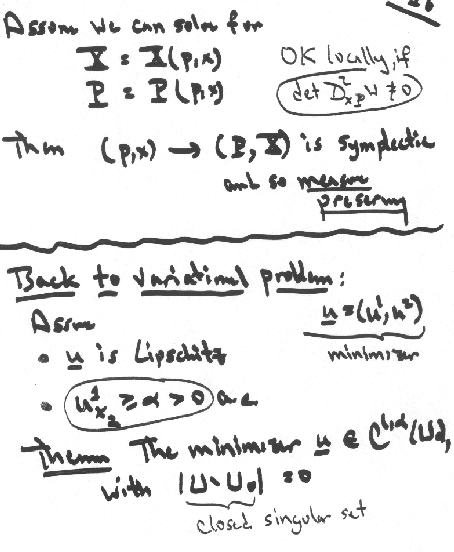 26
Assume we can solve for
X = X(p,x) OK locally, if
P = P(p,x) det D²ₓₚ W ≠ 0
Then (p,x) → (P, X) is symplectic
and so measure
preserving
Back to variational problem:
Assume u = (u¹, u²)
• u is Lipschitz minimizer
• u¹ₓ₂ ≥ α > 0 a.e.
Theorem The minimizer u ∈ C^{1,α}(U₀),
with |U \ U₀| = 0
closed singular set